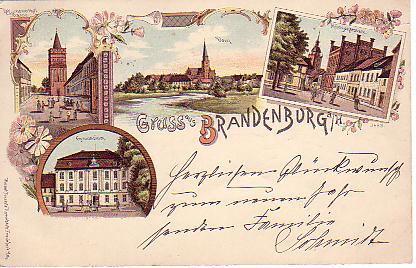 Dom.
Gruss a. Brandenburg a/H.
Gymnasium.
Herzlichen Glückwunsch
zum neuen Jahr
senden Familie
Schmidt